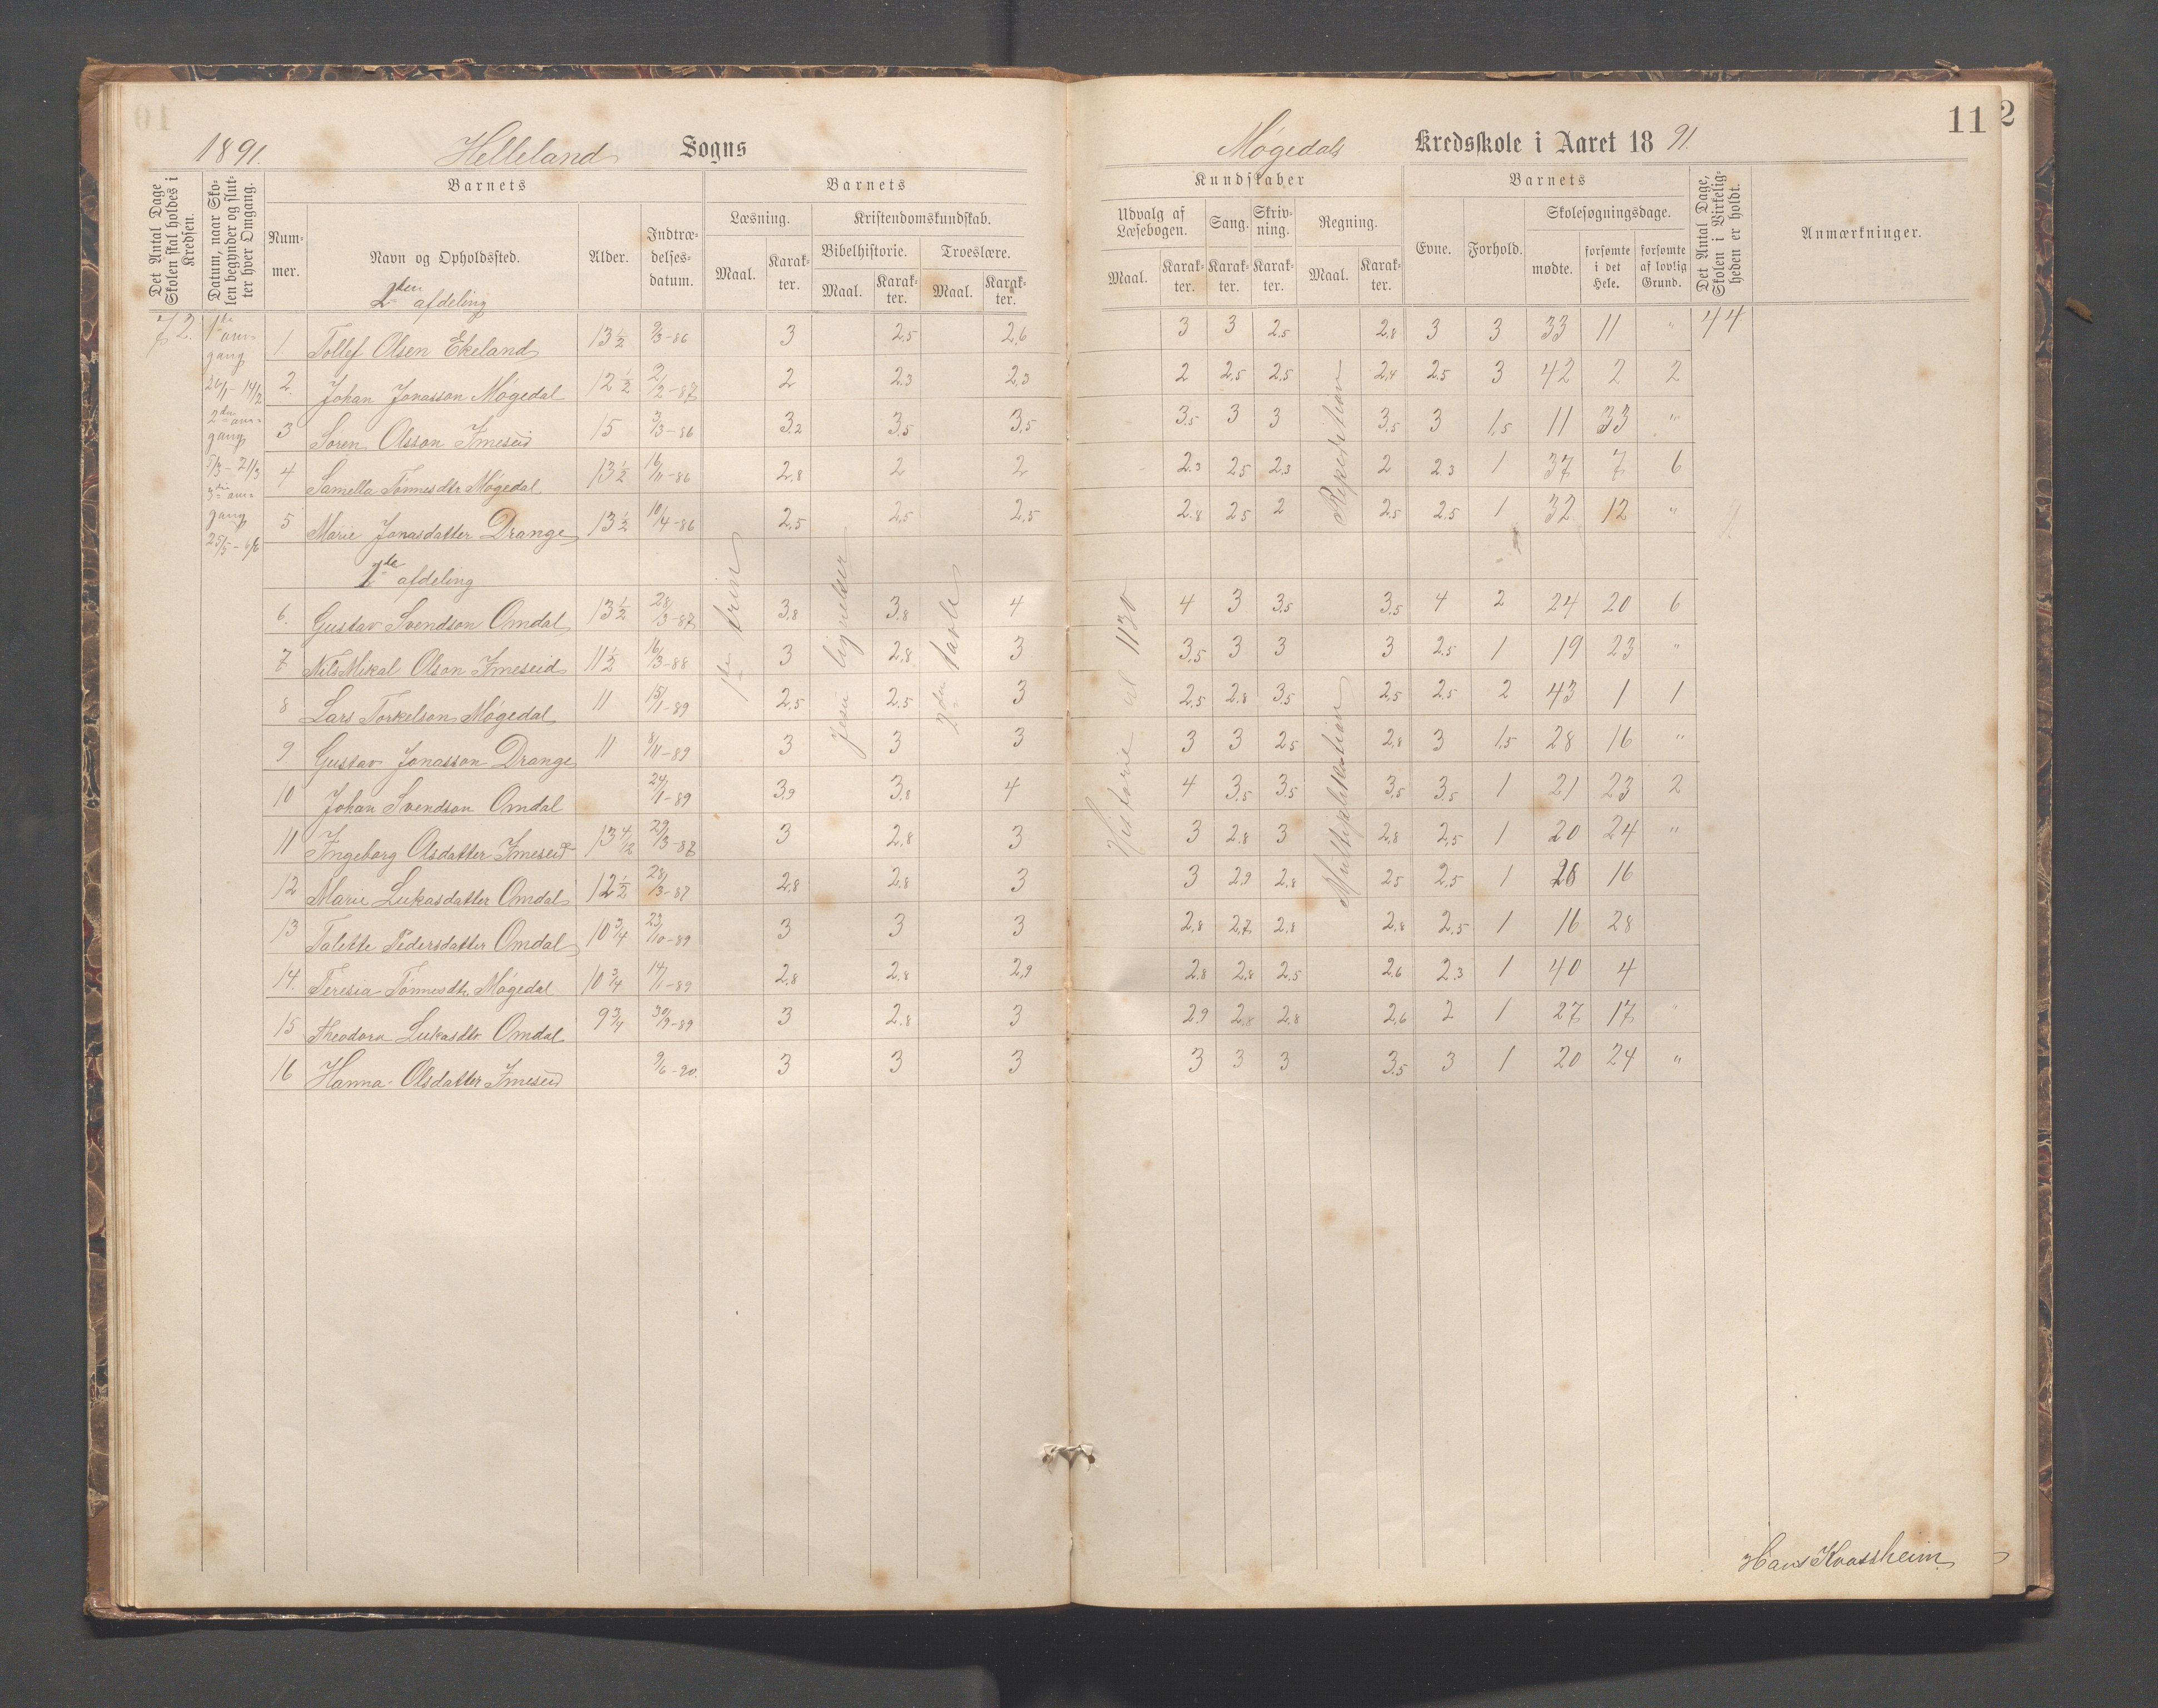 11
2
1891. Helleland Sogns
Møgedals Kredsskole i Aaret 1891.
Det Antal Dage Skolen skal holdes i Kredsen.
Datum, naar Skolen begynder og slutter hver Omgang.
Barnets
Nummer.
Navn og Opholdssted.
Alder.
Indtrædelsesdatum.
Barnets
Læsning.
Maal.
Karakter.
Kristendomskundskab.
Bibelhistorie.
Maal.
Karakter.
Troeslære.
Maal.
Karakter.
Kundskaber
Udvalg af Læsebogen.
Maal.
Karakter.
Sang.
Karakter.
Skrivning.
Karakter.
Regning.
Maal.
Karakter.
Barnets
Evne.
Forhold.
Skolesøgningsdage.
mødte.
forsømte i det Hele.
forsømte af lovlig Grund.
Det Antal Dage, Skolen i Virkeligheden er holdt.
Anmærkninger.
72. 1ste om-
gang
26/1 - 14/2
2den om-
gang
5/3 - 21/3
3die om-
gang
25/5 - 6/6
44
2den afdeling
1. Tollef Olsen Ekeland 13 1/2 2/3-86 3 2,5 2,6 3 3 2,5 2,8 3 3 33 11 "
2. Johan Jonasson Møgedal 12 1/2 2/12-87 2 2,3 2,3 2 2,5 2,5 2,4 2,5 3 42 2 2
3 Søren Olsson Imeseid 15 3/3-86 3,2 3,5 3,5 3,5 3 3 3,5 3 1,5 11 33 "
4 Samella Tønnesdtr Møgedal 13 1/2 16/11-86 2,8 2 2 2,3 2,5 2,3 2 2,3 1 37 7 6
5 Marie Jonasdatter Drange 13 1/2 10/4-86 2,5 2,5 2,5 2,8 2,5 2 2,5 2,5 1 32 12 "
1ste afdeling
6. Gustav Svendson Omdal 13 1/2 28/3-87 3,8 3,8 4 4 3 3,5 3,5 4 2 24 20 6
7 Nils Mikal Olson Imeseid 11 1/2 16/3-88 3 2,8 3 3,5 3 3 3 2,5 1 19 23 "
8 Lars Torkelson Møgedal 11 15/1-89 2,5 2,5 3 2,5 2,8 3,5 2,5 2,5 2 43 1 1
9 Gustav Jonasson Drange 11 8/11-89 3 3 3 3 3 2,5 2,8 3 1,5 28 16 "
10 Johan Svendson Omdal 24/1-89 3,9 3,8 4 4 3,5 3,5 3,5 3,5 1 21 23 2
11 Ingeborg Olsdatter Imeseid 13 4/12 29/3-87 3 2,8 3 3 2,8 3 2,8 2,5 1 20 24 "
12 Marie Lukasdatter Omdal 12 1/2 28/3-87 2,8 2,8 3 3 2,9 2,8 2,5 2,5 1 28 16
13 Talette Pedersdatter Omdal 10 3/4 23/10-89 3 3 3 2,8 2,7 2,8 2,8 2,5 1 16 28
14. Teresia Tønnesdtr. Møgedal 10 3/4 14/1-89 2,8 2,8 2,9 2,8 2,8 2,5 2,6 2,3 1 40 4
15 Theodora Lukasdtr Omdal 9 3/4 30/9-89 3 2,8 3 2,9 2,8 2,8 2,6 2 1 27 17 "
16 Hanna Olsdatter Imeseid 9/6-90. 3 3 3 3 3 3 3,5 3 1 20 24 "
1ste trin
Jesu lignelser
2den tavle
Historie til 1130
Repetition
Multiplikation
Hans Kvassheim